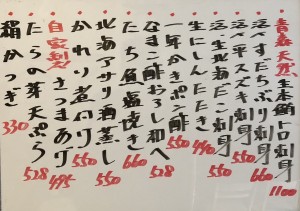 青森天然生本鮪トロ刺身 1100
活〆すだちぶり刺身 660
活〆平スズキ刺身 550
生北海だこ刺身 550
生にしんたたき 440
一年かきポン酢 550
なまこ酢おろし和へ 528
たち魚塩焼き 660
北海アサリ酒蒸し 550
かれい煮付け 550
自家製さつまあげ 495
たらの芽天ぷら 528
稲かつぎ 330